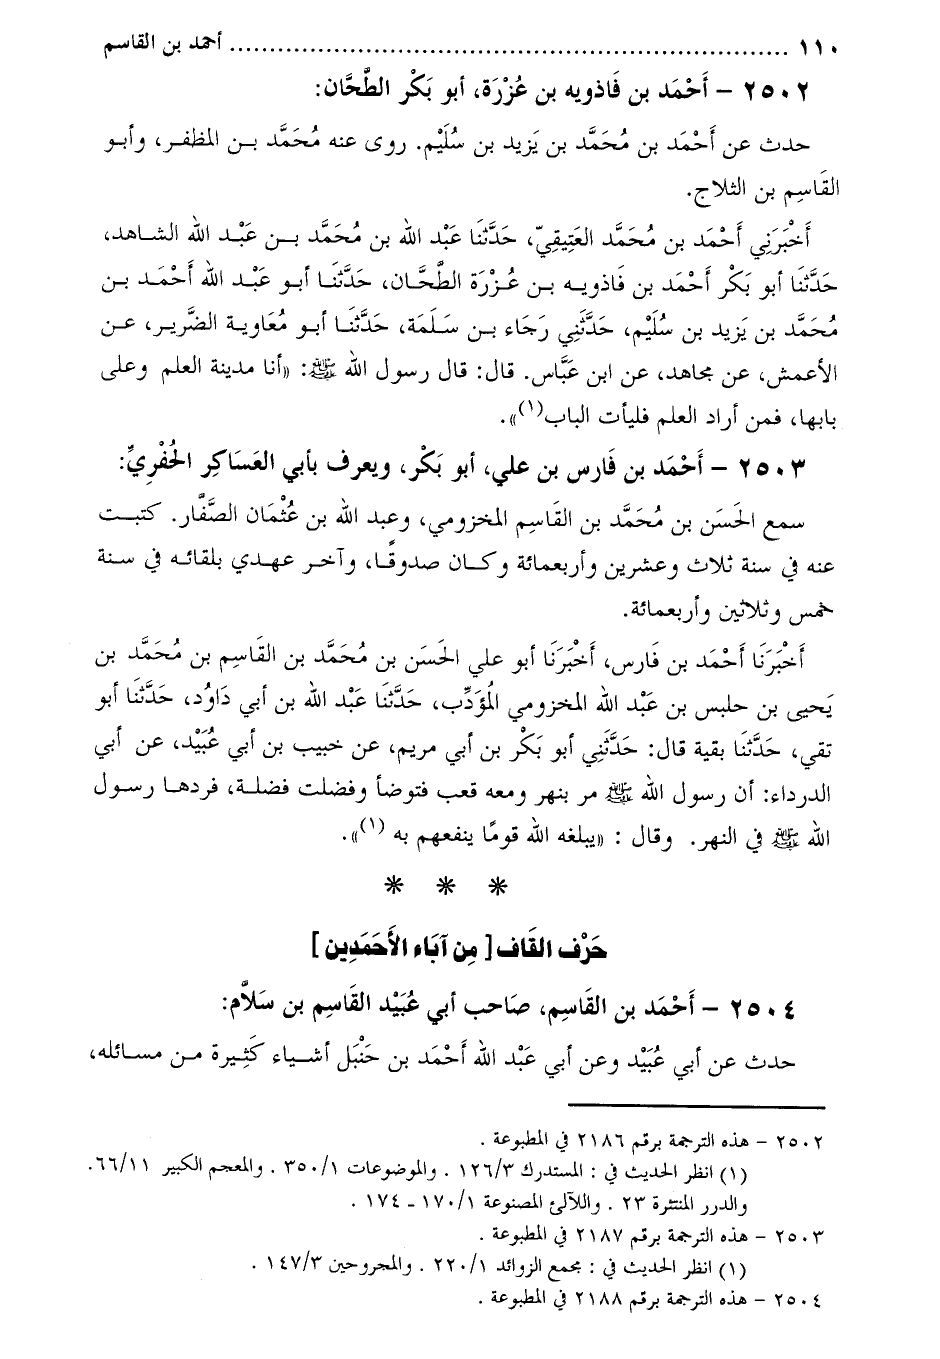 ١١٠ ................................................................ أحمد بن القاسم
٢٥٠٢ – أَحْمَد بن فَاذويه بن عُزْرَة، أبو بَكْر الطَّحَّان:
حدث عن أَحْمَد بن مُحَمَّد بن يَزِيد بن سُلَيْم. روى عنه مُحَمَّد بـن المظفر، وأبـو
القَاسِم بن الثلاج.
أَخْبَرَنِي أَحْمَد بن مُحَمَّد العَتِيقِيّ، حَدَّثَنَا عَبْد الله بن مُحَمَّد بـن عَبْـد الله الشـاهد،
حَدَّثَنَا أبو بَكْر أَحْمَد بن فَاذويـه بـن عُـزْرَة الطَّحَّـان، حَدَّثَنَـا أبـو عَبْـد الله أَحْمَـد بـن
مُحَمَّد بن يَزِيد بن سُلَيْم، حَدَّثَنِي رَجَاء بـن سَـلَمَة، حَدَّثَنَـا أبـو مُعَاويـة الضَّرير، عـن
الأعمش، عن مجاهد، عن ابن عَبَّاس. قال: قال رسول الله ﷺ: «أنا مدينة العلم وعلى
بابها، فمن أراد العلم فليأت الباب(١)».
٢٥٠٣ – أَحْمَد بن فَارس بن علي، أبو بَكْر، ويعرف بأبي العَسَاكِر الحُفْرِيِّ:
سمع الحَسَن بن مُحَمَّد بن القَاسِم المخزومي، وعبد الله بن عُثْمَان الصَّفَّار. كتبـت
عنه في سنة ثلاث وعشرين وأربعمائة وكـان صدوقًـا، وآخـر عهـدي بلقائـه في سـنة
خمس وثلاثين وأربعمائة.
أَخْبَرَنَا أَحْمَد بن فَارس، أَخْبَرَنَا أبو علي الحَسَن بن مُحَمَّد بن القَاسِم بن مُحَمَّد بن
يَحيى بن حلبس بن عَبْد الله المخزومي المُؤَدِّب، حَدَّثَنَا عَبْد الله بن أبي دَاوُد، حَدَّثَنَا أبو
تقي، حَدَّثَنَا بقية قال: حَدَّثَنِي أبو بَكْر بن أبي مريم، عن حبيب بن أبي عُبَيْد، عن أبي
الدرداء: أن رسول الله ﷺ مر بنهر ومعه قعب فتوضأ وفضلت فضلـة، فردهـا رسـول
الله ﷺ في النهر. وقال : «يبلغه الله قومًا ينفعهم به (١)».
* * *
حَرْف القَاف [ مِن آبَاء الأَحْمَدِين ]
٢٥٠٤ – أَحْمَد بن القَاسِم، صَاحب أبي عُبَيْد القَاسِم بن سَلاَّم:
حدث عن أبي عُبَيْد وعن أبي عَبْد الله أَحْمَد بن حَنْبَل أشـياء كَثِيرة مـن مسـائله،
٢٥٠٢ – هذه الترجمة برقم ٢١٨٦ في المطبوعة .
(١) انظر الحديث في : المستدرك ١٢٦/٣ . والموضوعات ٣٥٠/١ . والمعجم الكبير ٦٦/١١.
والدرر المنتثرة ٢٣ . واللآلئ المصنوعة ١٧٠/١ ـ ١٧٤ .
٢٥٠٣ – هذه الترجمة برقم ٢١٨٧ في المطبوعة .
(١) انظر الحديث في : مجمع الزوائد ٢٢٠/١ . والمجروحين ١٤٧/٣ .
٢٥٠٤ – هذه الترجمة برقم ٢١٨٨ في المطبوعة .